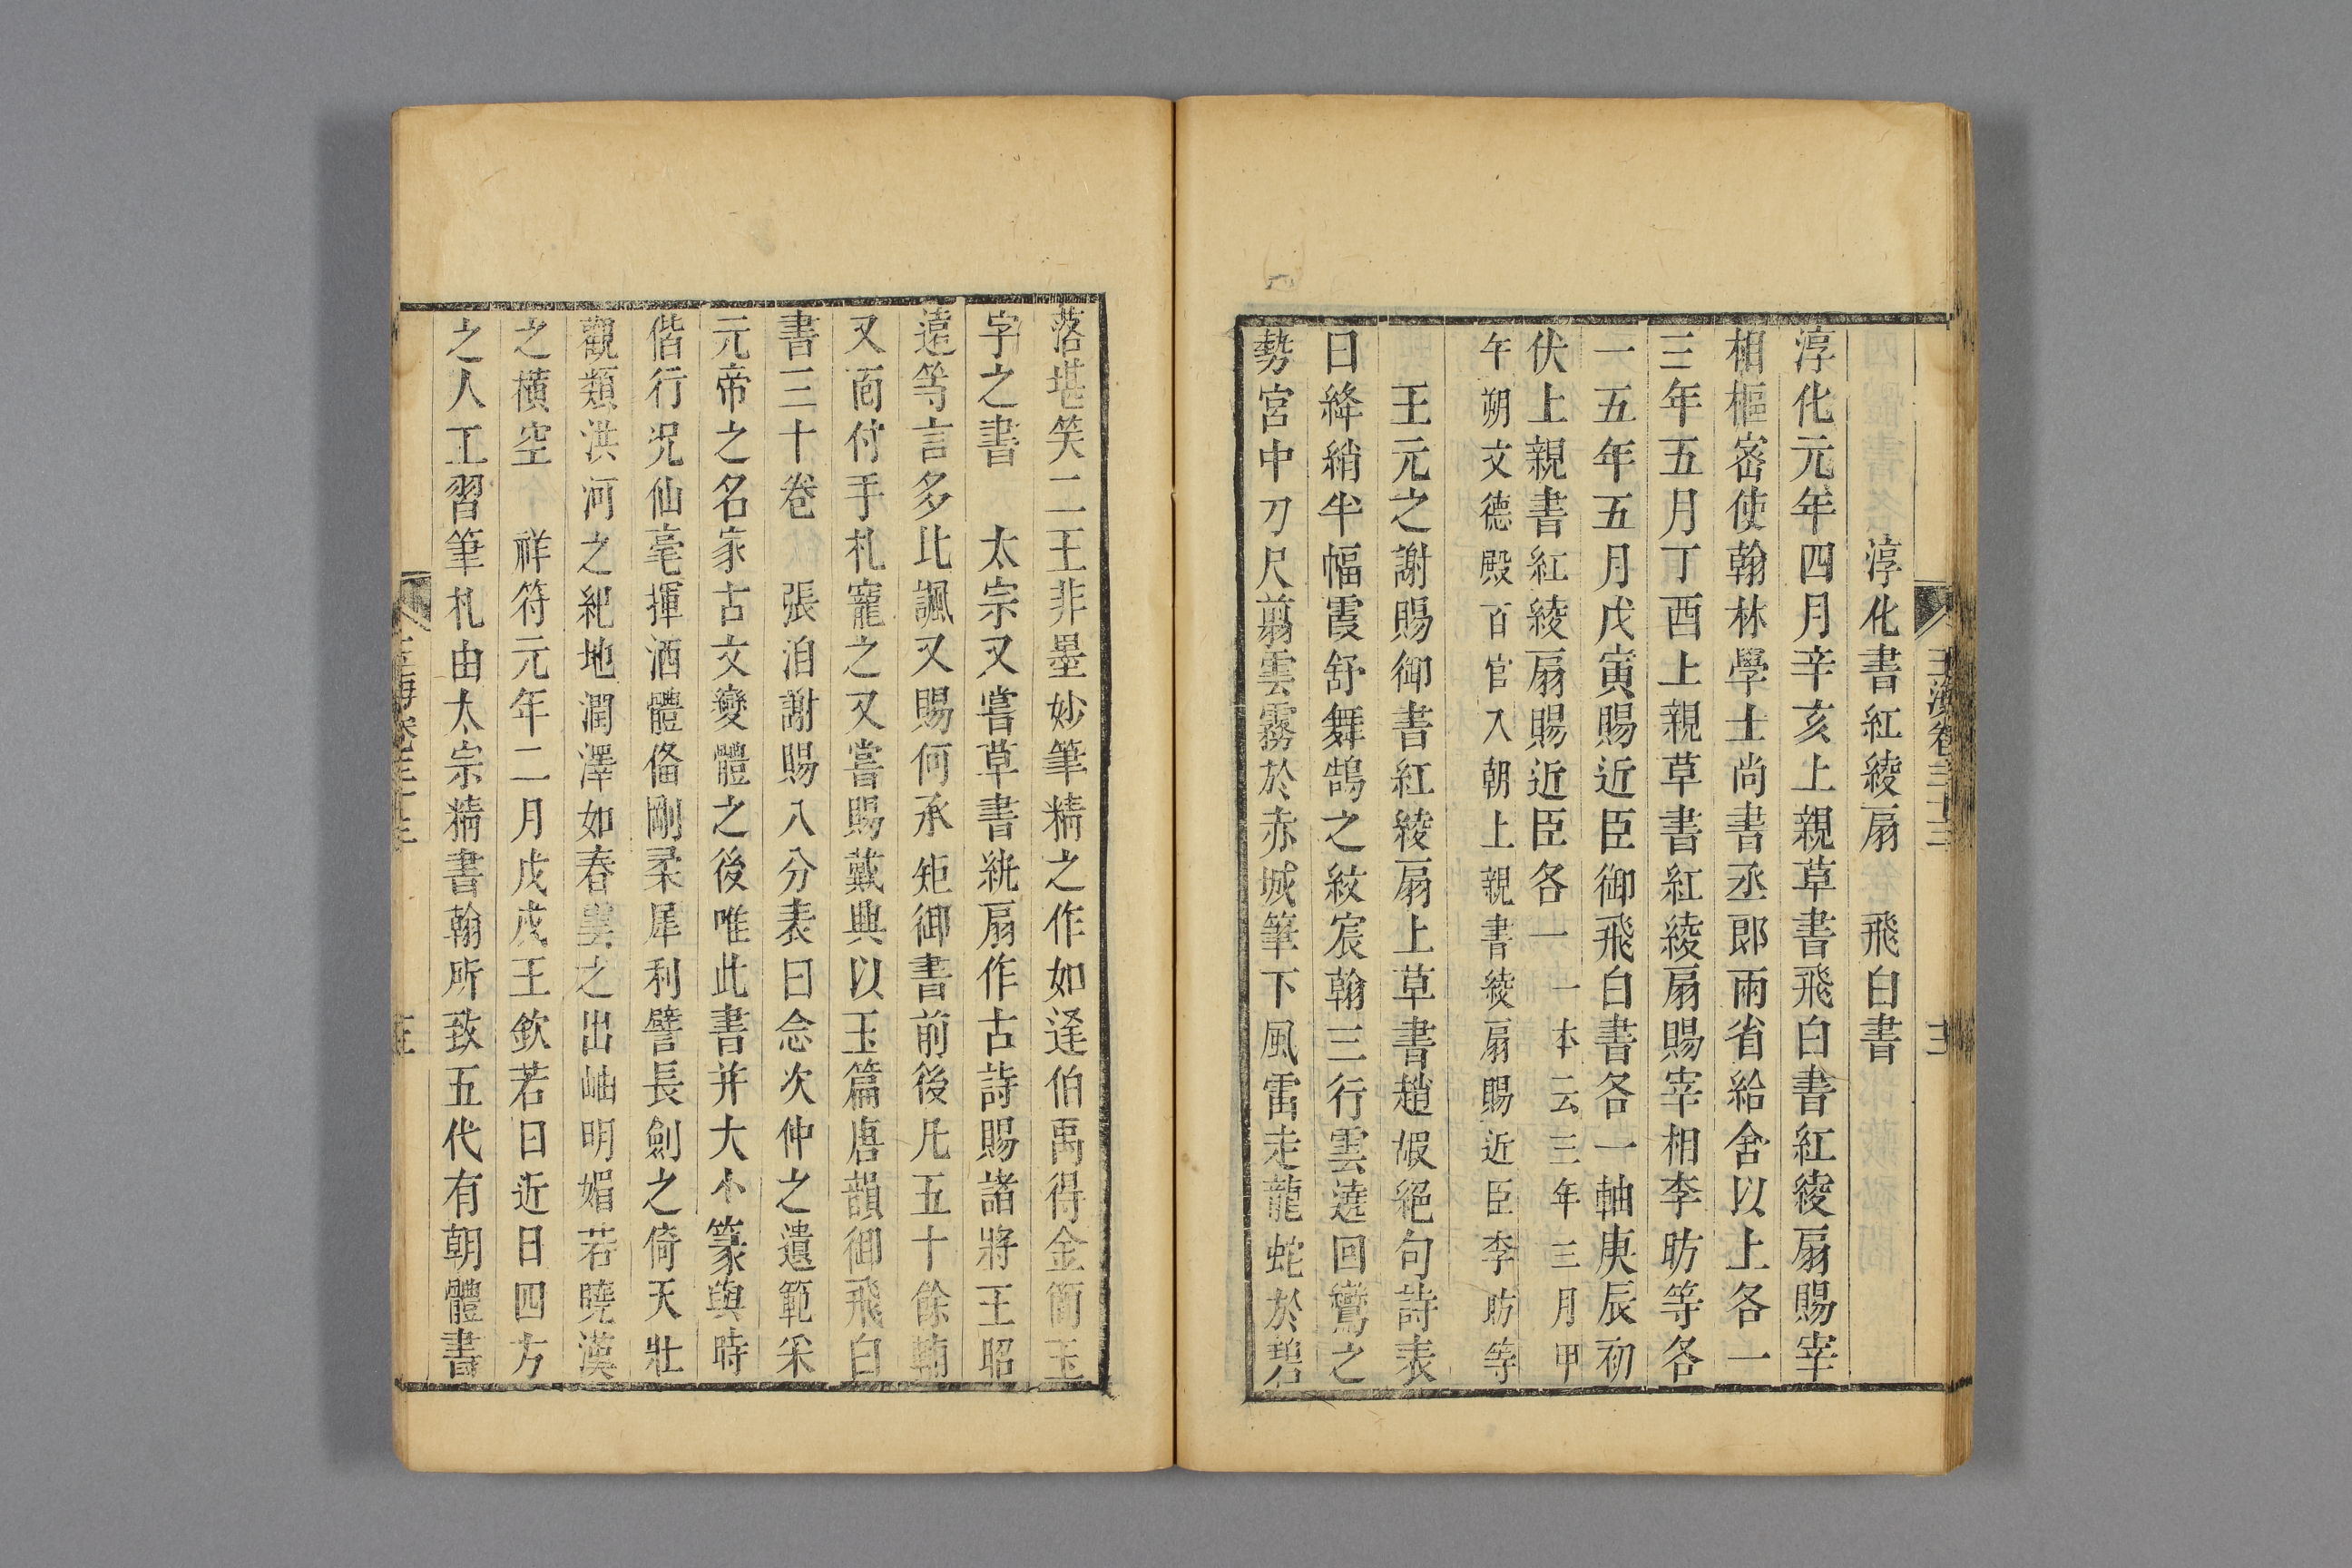 玉海卷三十三
淳化書紅綾扇　飛白書
淳化元年四月辛亥上親草書飛白書紅綾扇賜宰
相樞宻使翰林學士尚書丞郎兩省給舍以上各一
三年五月丁酉上親草書紅綾扇賜宰相李昉等各
一五年五月戊寅賜近臣御飛白書各一軸庚辰初
伏上親書紅綾扇賜近臣各一一本云三年三月甲
午朔文德殿百官入朝上親書綾扇賜近臣李昉等
王元之謝賜御書紅綾扇上草書趙嘏絕句詩表
曰絳綃半幅霞舒舞鵠之紋宸翰三行雲遶回鸞之
勢宮中刀尺翦雲霧於赤城筆下風雷走龍蛇於碧
落堪笑二王非墨妙筆精之作如逢伯禹得金簡玉
字之書　太宗又嘗草書紈扇作古詩賜諸將王昭
遠等言多比諷又賜何承矩御書前後凡五十餘軸
又面付手札寵之又嘗賜戴興以玉篇唐韻御飛白
書三十卷　張洎謝賜八分表曰念次仲之遺範采
元帝之名家古文變體之後唯此書并大小篆與時
偕行况仙毫揮洒體俻剛柔犀利譬長劍之倚天壯
觀類洪河之紀地潤澤如春雲之出岫明媚若曉漢
之橫空　祥符元年二月戊戌王欽若曰近日四方
之人工習筆札由太宗精書翰所致五代有朝體書